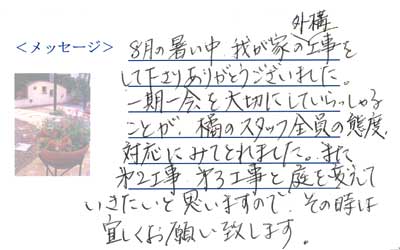 <メッセージ>
8月の暑い中 我が家の外構工事を
して下さりありがとうございました。
一期一会を大切にしていらっしゃる
ことが、橘のスタッフ全員の態度、
対応にみてとれました。また
第2工事 第3工事と庭を変えて
いきたいと思いますので、その時は
宜しくお願い致します。